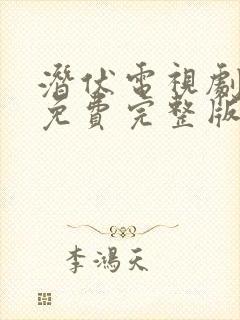 潛伏電視劇
免費完整版
李鴻天